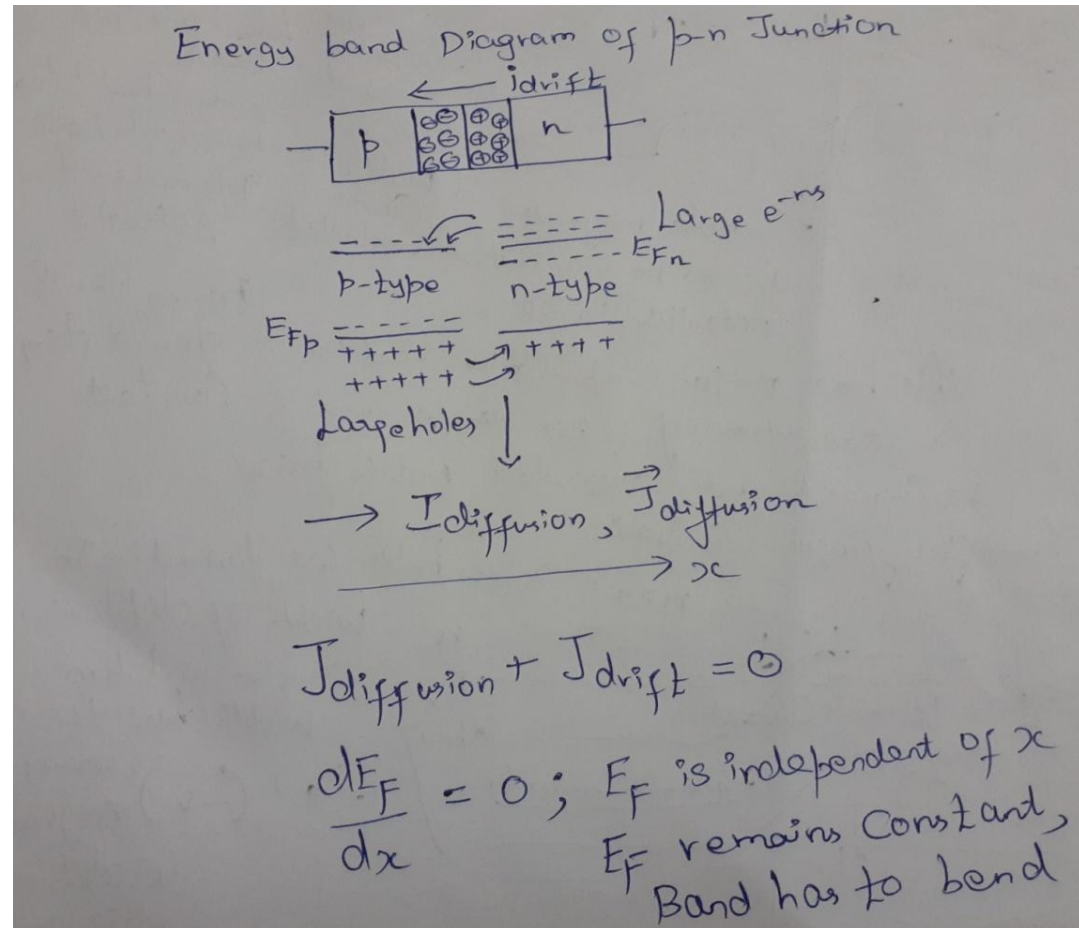 Energy band Diagram of p-n Junction
← idrift
p ⊖⊖ ⊕⊕ n
⊖⊖ ⊕⊕
⊖⊖ ⊕⊕
- - - - - - - - - Large e-ns
- - - - - EFn
p-type n-type
EFp - - - - -
+ + + + + + + + +
+ + + + +
Large holes
→ Idiffusion, Jdiffusion
→ x
Jdiffusion + Jdrift = 0
dEF/dx = 0 ; EF is independent of x
EF remains Constant,
Band has to bend